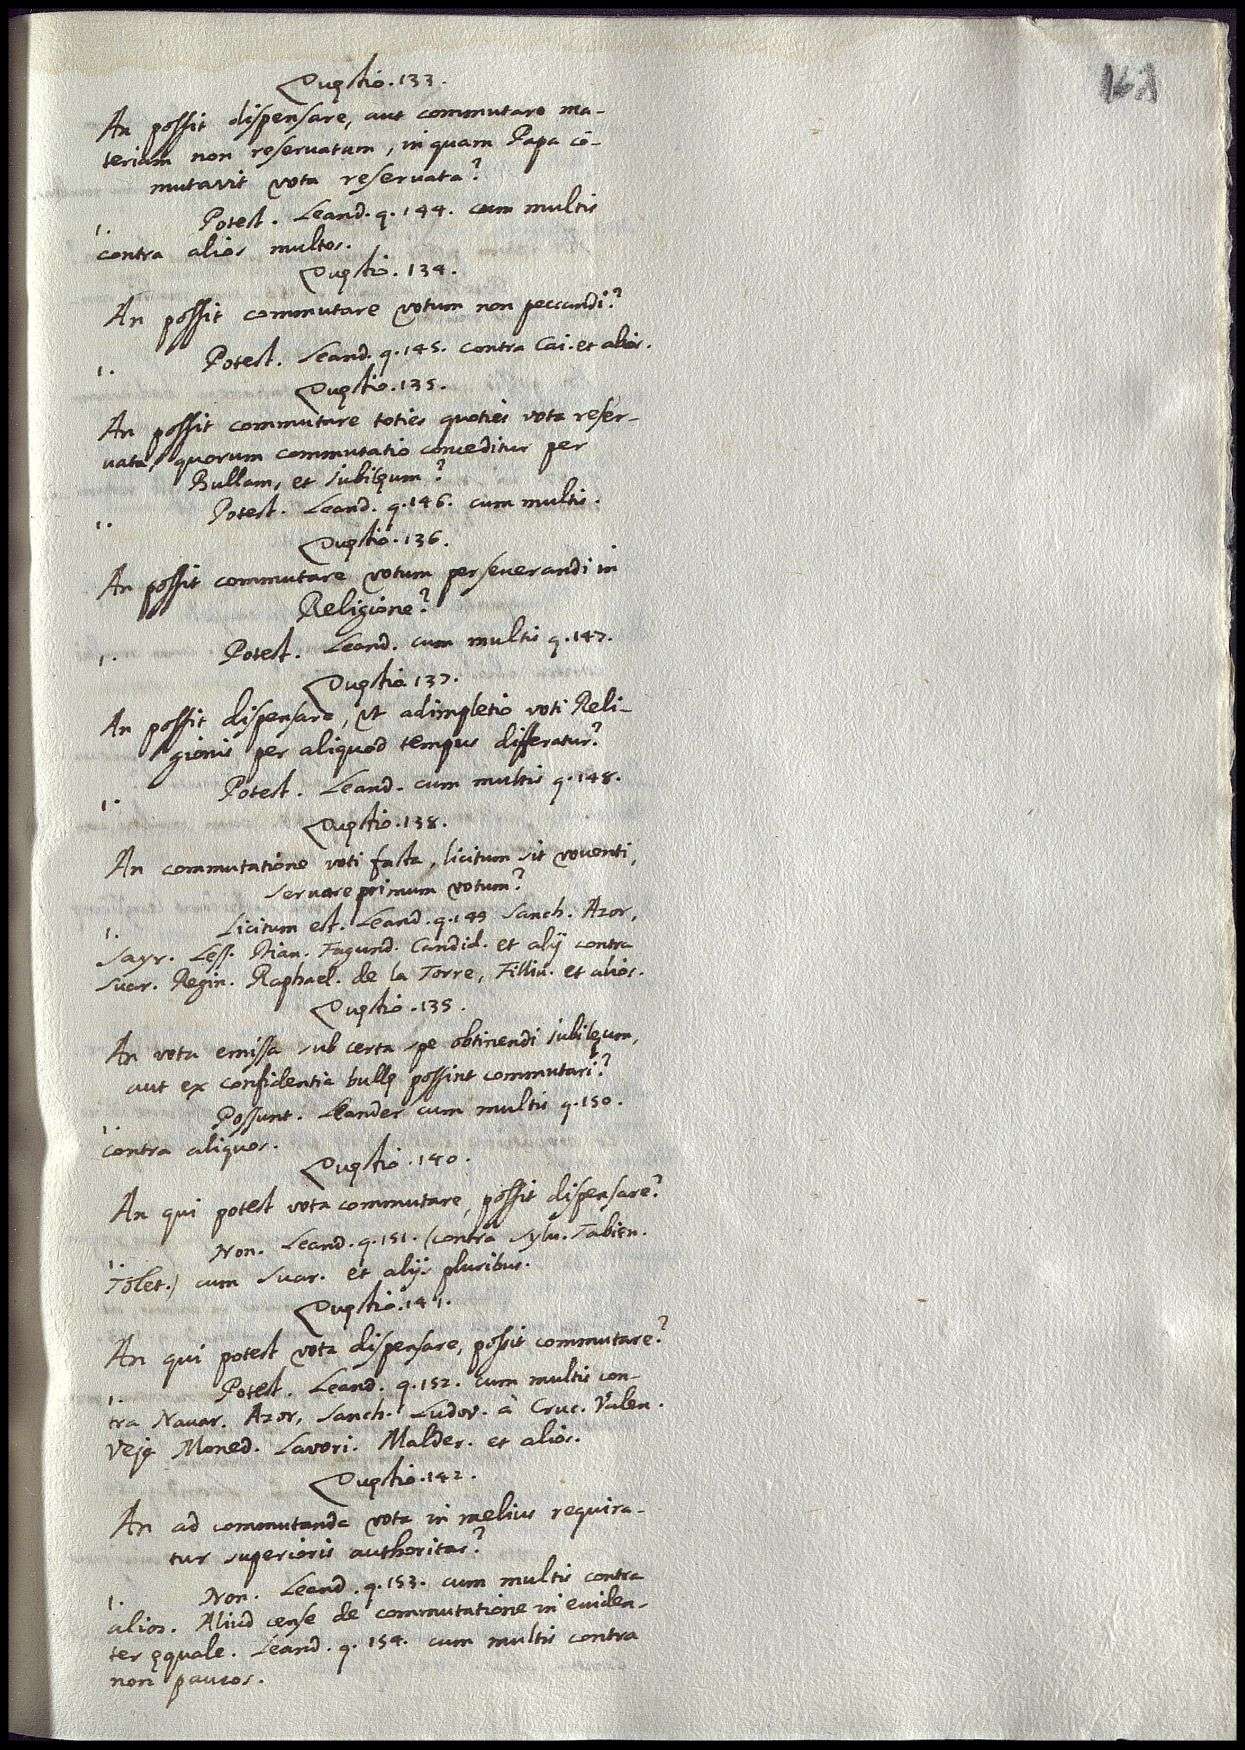 Quęstio. 133.
An possit dispensare, aut commutare ma-
teriam non reservatam, in quam Papa cō-
mutavit vota reservata?
1. Potest. Leand. q. 144. cum multis
contra alios multos.
Quęstio. 134.
An possit commutare votum non peccandi?
1. Potest. Leand. q. 145. contra Cai. et alios.
Quęstio. 135.
An possit commutare toties quoties vota reser-
uata, quorum commutatio conceditur per
Bullam, et Jubilęum?
1. Potest. Leand. q. 146. cum multis.
Quęstio. 136.
An possit commutare votum perseuerandi in
Religione?
1. Potest. Leand. cum multis q. 147.
Quęstio. 137.
An possit dispensare, ut adimpletio voti Reli-
gionis per aliquod tempus differatur?
1. Potest. Leand. cum multis q. 148.
Quęstio. 138.
An commutatione voti facta, licitum sit vouenti,
seruare primum votum?
1. Licitum est. Leand. q. 149 Sanch. Azor,
Sayr. Less. Dian. Fagund. Candid. et alij contra
Suar. Regin. Raphael. de la Torre, Filliu. et alios.
Quęstio. 139.
An vota emissa sub certa spe obtinendi Jubilęum,
aut ex confidentia bullę possint commutari?
1. Possunt. Leander cum multis q. 150.
contra aliquos.
Quęstio. 140.
An qui potest vota commutare, possit dispensare?
1. Non. Leand. q. 151. (contra Sylu. Tabien.
Tolet.) cum Suar. et alijs pluribus.
Quęstio. 141.
An qui potest vota dispensare, possit commutare?
1. Potest. Leand. q. 152. cum multis con-
tra Nauar. Azor, Sanch. Ludov. à Cruc. Valen.
Vegę Moned. Lavori. Malder. et alios.
Quęstio. 142.
An ad commutanda vota in melius requira-
tur superioris authoritas?
1. Non. Leand. q. 153. cum multis contra
alios. Aliud cense de commutatione in euiden-
ter ęquale. Leand. q. 154. cum multis contra
non paucos.